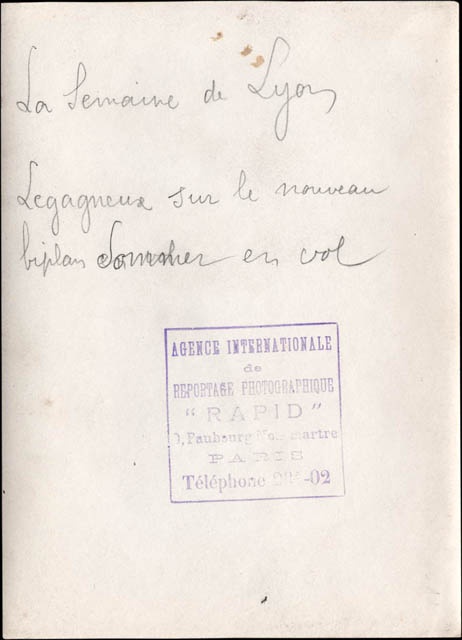 La Semaine de Lyon
Legagneux sur le nouveau
biplan Sommer en vol
AGENCE INTERNATIONALE
de
REPORTAGE PHOTOGRAPHIQUE
"RAPID"
Faubourg Montmartre
PARIS
Téléphone -02